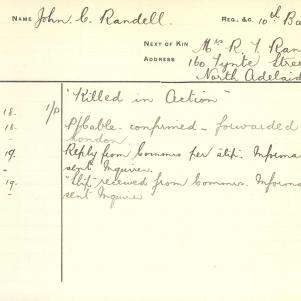 NAME John C. Randell. REG., &C. 10th Ba
NEXT OF KIN Mrs R. Y. Ran
ADDRESS 160 Tynte Stree
North Adelaid
"Killed in Action"
18. 1/P
18. P/Cable - confirmed - forwarded
London
19. Reply from Commrs per slip. Informa
" sent Inquirer.
19. "Slip" received from Commrs. Informa
- sent Inquirer